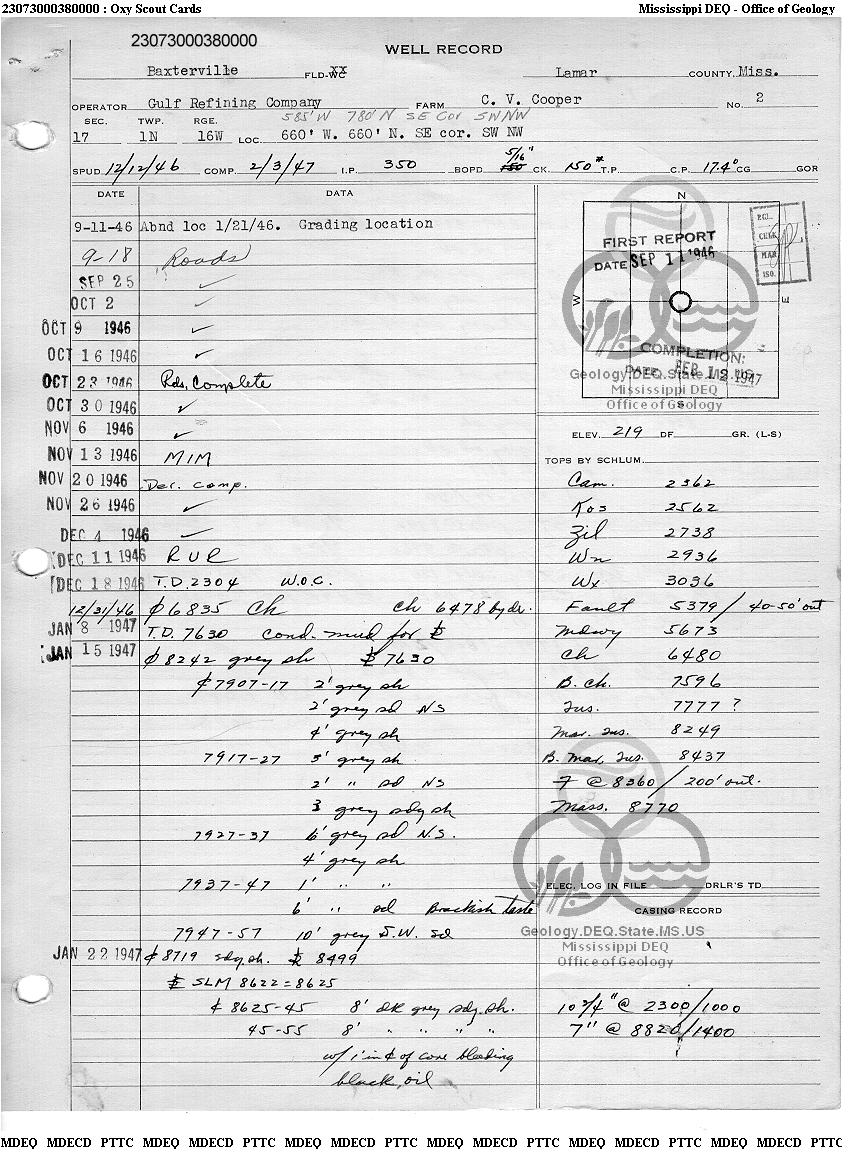 23073000380000 : Oxy Scout Cards Mississippi DEQ - Office of Geology
23073000380000
WELL RECORD
Baxterville FLD-WC XX Lamar COUNTY, Miss.
OPERATOR Gulf Refining Company FARM C. V. Cooper No. 2
585' W 780' N SE Cor SW NW
SEC. TWP. RGE.
17 1N 16W LOC. 660' W. 660' N. SE cor. SW NW
SPUD 12/12/46 COMP. 2/3/47 I.P. 350 BOPD 5/16" 150 CK. 150# T.P. C.P. 17.4° CG GOR
DATE DATA
9-11-46 Abnd loc 1/21/46. Grading location
9-18 Roads
SEP 25 ✓
OCT 2 ✓
OCT 9 1946 ✓
OCT 16 1946 ✓
OCT 23 1946 Rds. Complete
OCT 30 1946 ✓
NOV 6 1946 ✓
NOV 13 1946 MIM
NOV 20 1946 Der. comp.
NOV 26 1946 ✓
DEC 4 1946 ✓
DEC 11 1946 RUR
DEC 18 1946 T.D. 2304 W.O.C.
12/31/46 ₵ 6835 Ch Ch 6478 by dr.
JAN 8 1947 T.D. 7630 Cond. mud for
JAN 15 1947 ₵ 8242 grey sh 7630
₵ 7907-17 2' grey sh
2' grey sd NS
4' grey sh
7917-27 5' grey sh
2' " sd NS
3 grey sdy sh
7927-37 6' grey sd N.S.
4' grey sh
7937-47 1' " "
6' " sd Brackish taste
7947-57 10' grey S.W. sd
JAN 22 1947 ₵ 8719 sdy sh. 8499
SLM 8622 = 8625
₵ 8625-45 8' dk grey sdy. sh.
45-55 8' " " " "
w/ 1' in ₵ of core bleeding
black oil
N
W
E
S
FIRST REPORT
DATE SEP 11 1946
REL.
CHEK
MAP
ISO.
COMPLETION:
DATE FEB 12 1947
Geology.DEQ.State.MS.US
Mississippi DEQ
Office of Geology
ELEV. 219 DF GR. (L-S)
TOPS BY SCHLUM.
Cam. 2362
Kos 2562
Zil 2738
Wn 2936
Wx 3036
Fault 5379 / 40-50' out
Mdwy 5673
Ch 6480
B. Ch. 7596
Tus. 7777 ?
Mar. Tus. 8249
B. Mar. Tus. 8437
F @ 8360 / 200' out.
Mass. 8770
ELEC. LOG IN FILE DRLR'S TD
CASING RECORD
Geology.DEQ.State.MS.US
Mississippi DEQ
Office of Geology
10 3/4" @ 2300/1000
7" @ 8820/1400
MDEQ MDECD PTTC MDEQ MDECD PTTC MDEQ MDECD PTTC MDEQ MDECD PTTC MDEQ MDECD PTTC MDEQ MDECD PTTC